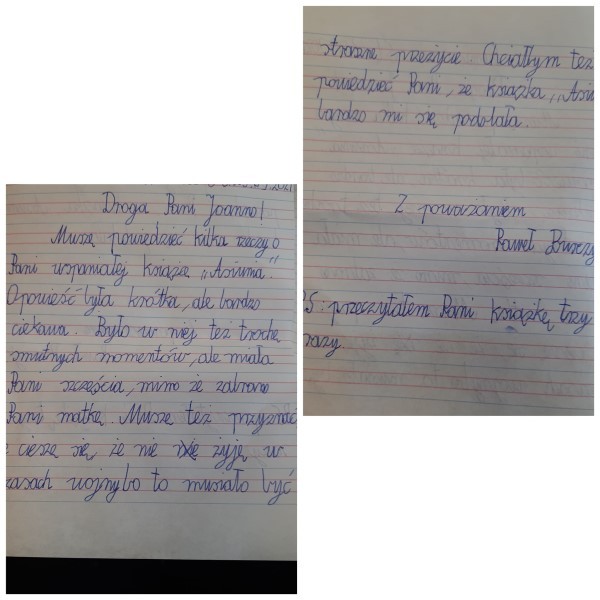 Droga Pani Joanno!
Muszę powiedzieć kilka rzeczy o
Pani wspaniałej książce "Asiunia".
Opowieść była krótka, ale bardzo
ciekawa. Było w niej też trochę
smutnych momentów, ale miała
Pani szczęścia, mimo że zabrano
Pani matkę. Muszę też przyznać
cieszę się, że nie żyję w
czasach wojny bo to musiało być
straszne przeżycie. Chciałbym też
powiedzieć Pani, że książka "Asiu
bardzo mi się podobała.
Z poważaniem
Paweł
PS. przeczytałem Pani książkę trzy
razy.